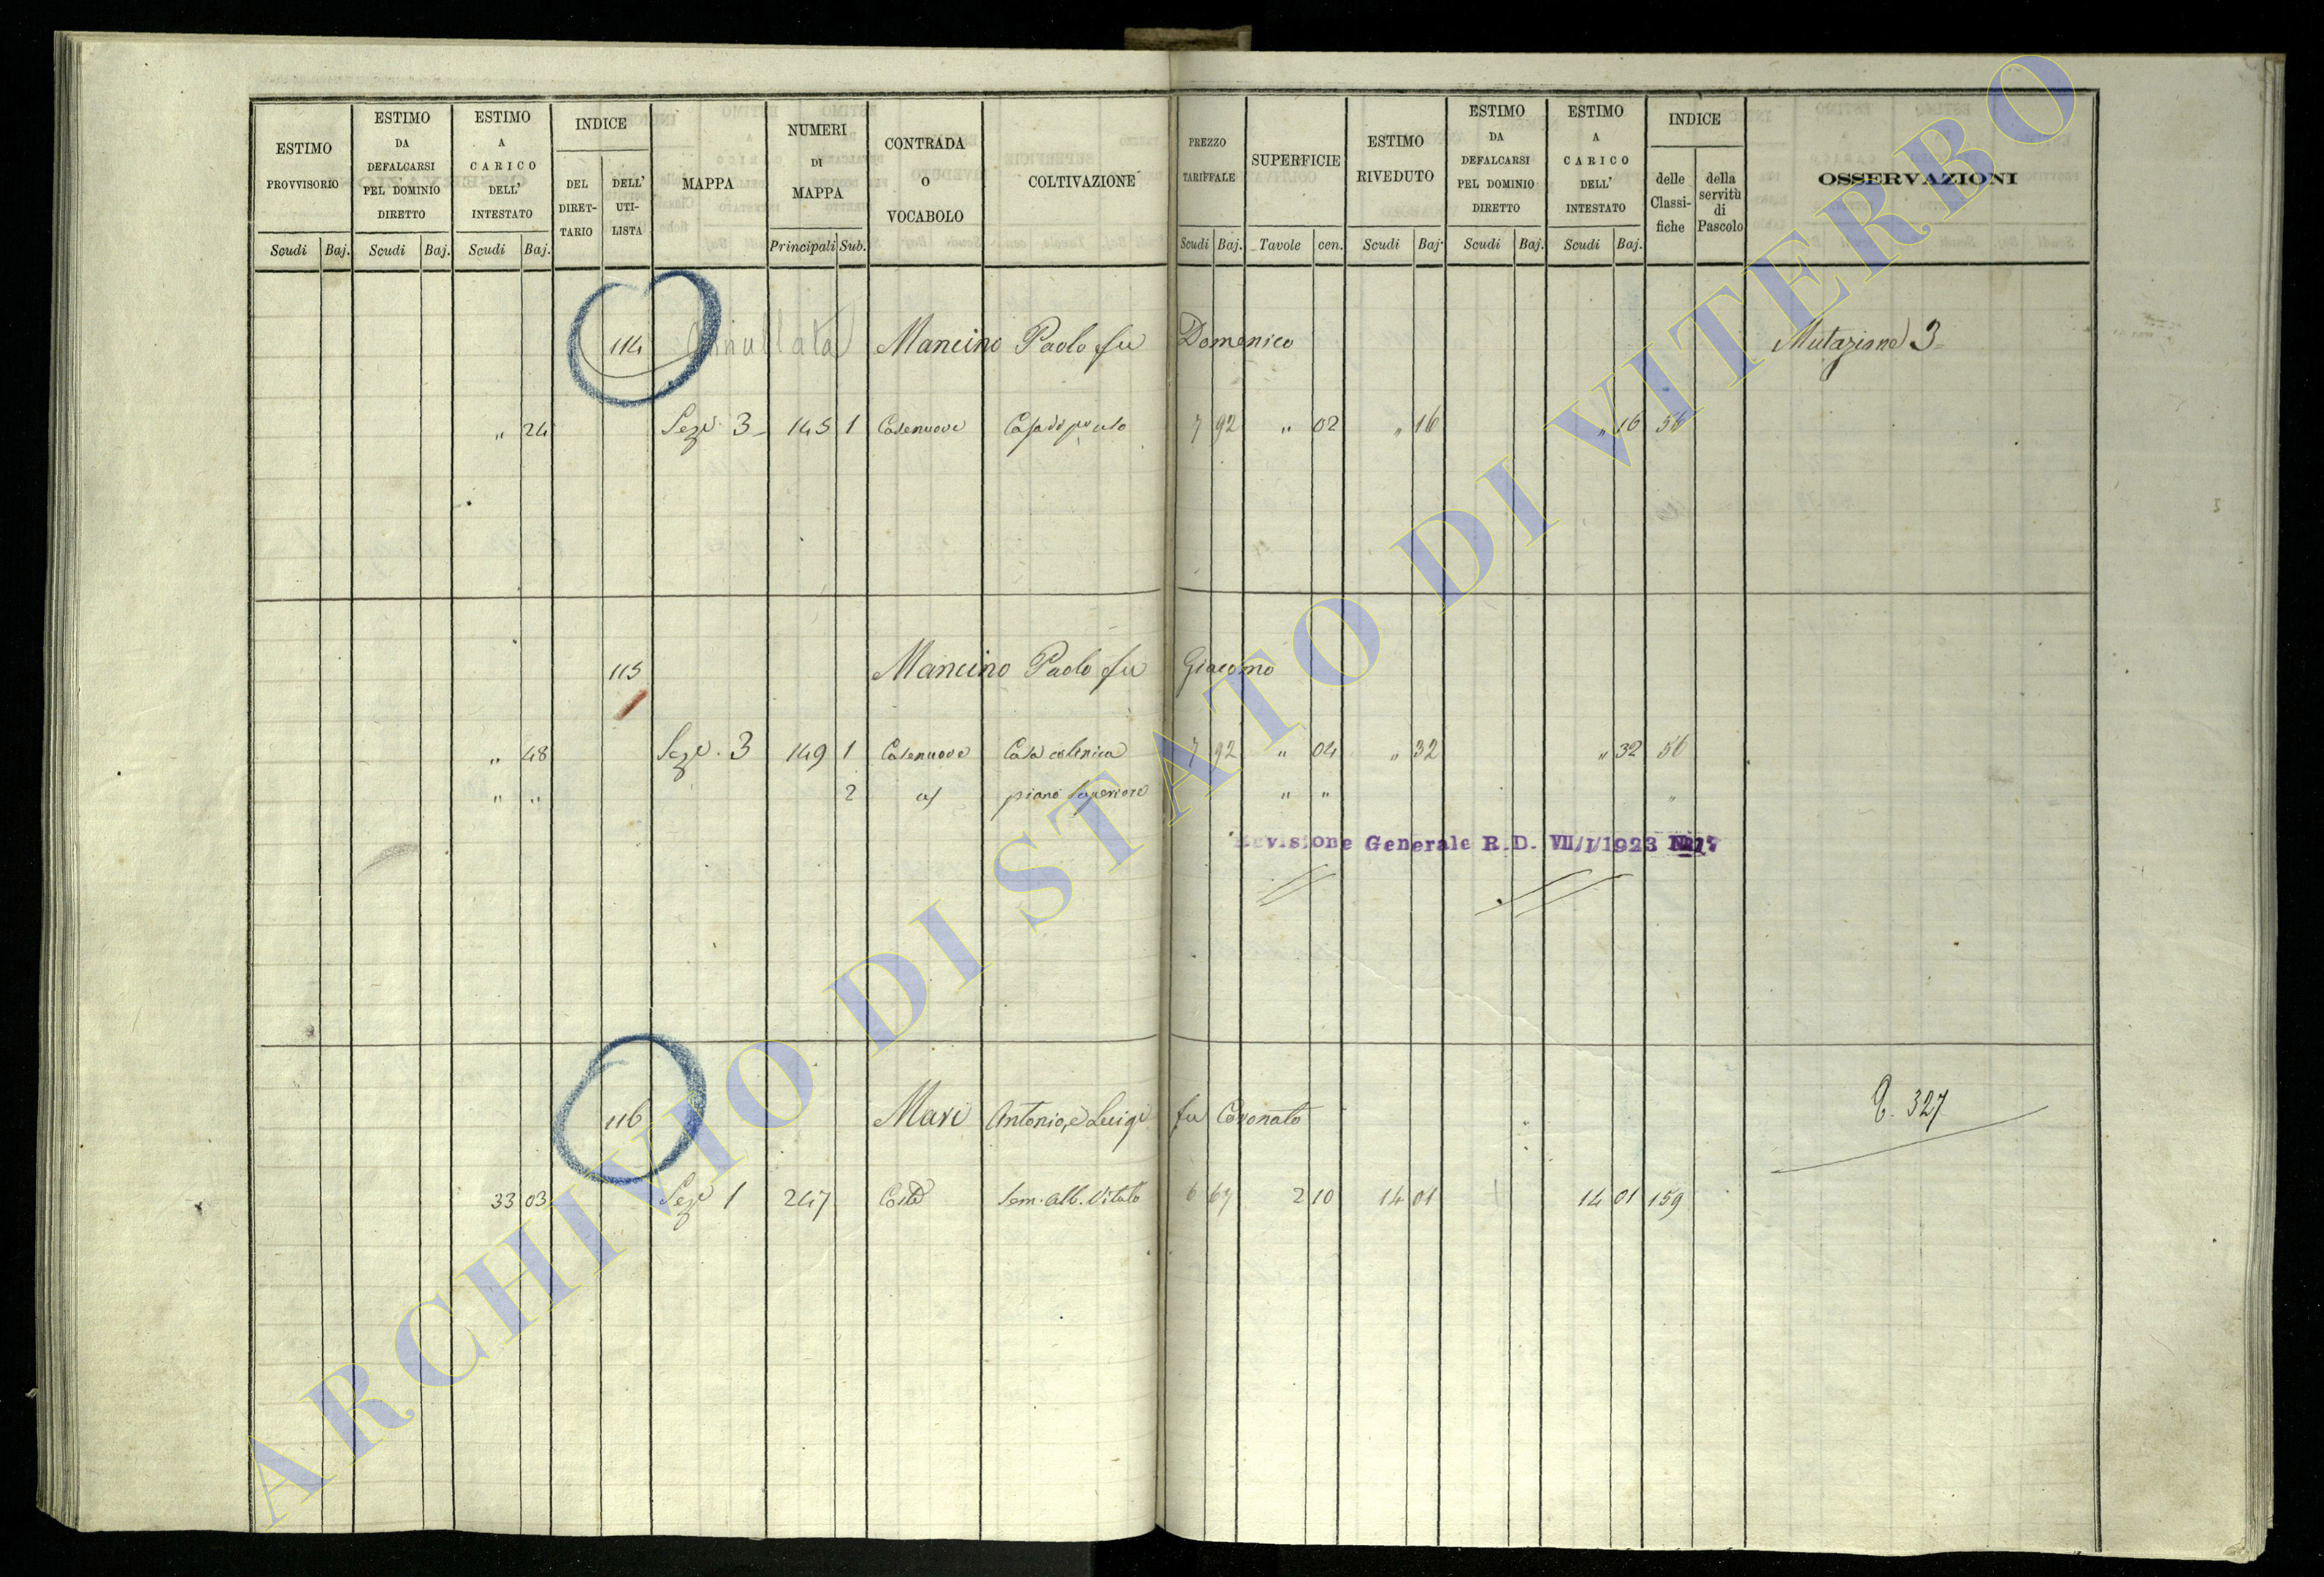 ESTIMO PROVVISORIO Scudi Baj.
ESTIMO DA DEFALCARSI PEL DOMINIO DIRETTO Scudi Baj.
ESTIMO A CARICO DELL' INTESTATO Scudi Baj.
INDICE DEL DIRET-TARIO DELL' UTI-LISTA
MAPPA
NUMERI DI MAPPA Principali Sub.
CONTRADA O VOCABOLO
COLTIVAZIONE
PREZZO TARIFFALE Scudi Baj.
SUPERFICIE Tavole cen.
ESTIMO RIVEDUTO Scudi Baj.
ESTIMO DA DEFALCARSI PEL DOMINIO DIRETTO Scudi Baj.
ESTIMO A CARICO DELL' INTESTATO Scudi Baj.
INDICE delle Classi-fiche della servitù di Pascolo
OSSERVAZIONI
114 Annullata Mancino Paolo fu Domenico Mutazione 3
" 24 Sez.e 3 145 1 Casenuove 7 92 " 02 " 16 " 16 56
115 Mancino Paolo fu Giacomo
" 48 Sez.e 3 149 1 Casenuove Casa colonica 7 92 " 04 " 32 " 32 56
" " 2 piano superiore " " "
Revisione Generale R.D. VII/I/1923 N 17
116 Mari Antonio, e Luigi fu Coronato 327
33 03 Sez.e 1 247 Costa Sem. Alb. Vitato 6 67 2 10 14 01 14 01 159
ARCHIVIO DI STATO DI VITERBO